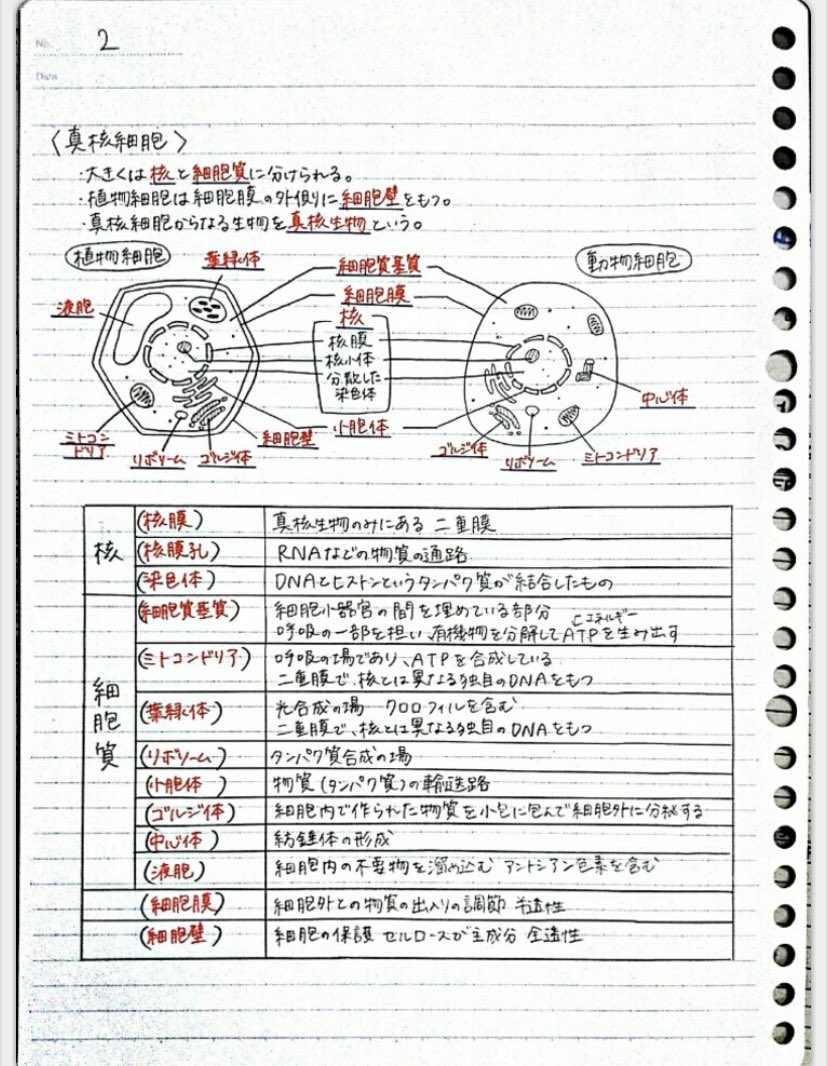 No.
2
Date
〈真核細胞〉
・大きくは核と細胞質に分けられる。
・植物細胞は細胞膜の外側に細胞壁をもつ。
・真核細胞からなる生物を真核生物という。
植物細胞
葉緑体
細胞質基質
動物細胞
液胞
細胞膜
核
核膜
核小体
分散した
染色体
中心体
ミトコン
ドリア
リボソーム
ゴルジ体
細胞壁
小胞体
ゴルジ体
リボソーム
ミトコンドリア
核
(核膜) 真核生物のみにある 二重膜
(核膜孔) RNAなどの物質の通路
(染色体) DNAとヒストンというタンパク質が結合したもの
細胞質
(細胞質基質) 細胞小器官の間を埋めている部分
エネルギー
呼吸の一部を担い、有機物を分解してATPを生み出す
(ミトコンドリア) 呼吸の場であり、ATPを合成している
二重膜で、核とは異なる独自のDNAをもつ
(葉緑体) 光合成の場 クロロフィルを含む
二重膜で、核とは異なる独自のDNAをもつ
(リボソーム) タンパク質合成の場
(小胞体) 物質(タンパク質)の輸送路
(ゴルジ体) 細胞内で作られた物質を小包に包んで細胞外に分秘する
(中心体) 紡錘体の形成
(液胞) 細胞内の不要物を溜め込む アントシアン色素を含む
(細胞膜) 細胞外との物質の出入りの調節 半透性
(細胞壁) 細胞の保護 セルロースが主成分 全透性